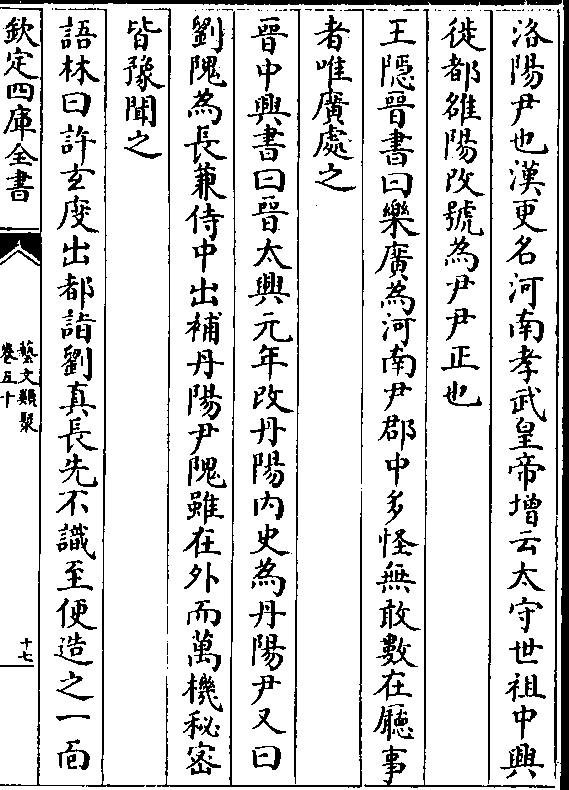 洛陽尹也漢更名河南孝武皇帝增云太守世祖中興
徙都雒陽改號為尹尹正也
王隱晉書曰樂廣為河南尹郡中多怪無敢數在廳事
者唯廣處之
晉中興書曰晉太興元年改丹陽内史為丹陽尹又曰
劉隗為長兼侍中出補丹陽尹隗雖在外而萬機秘密
皆豫聞之
語林曰許玄度出都詣劉真長先不識至便造之一面
欽定四庫全書
藝文類聚
卷五十
十七